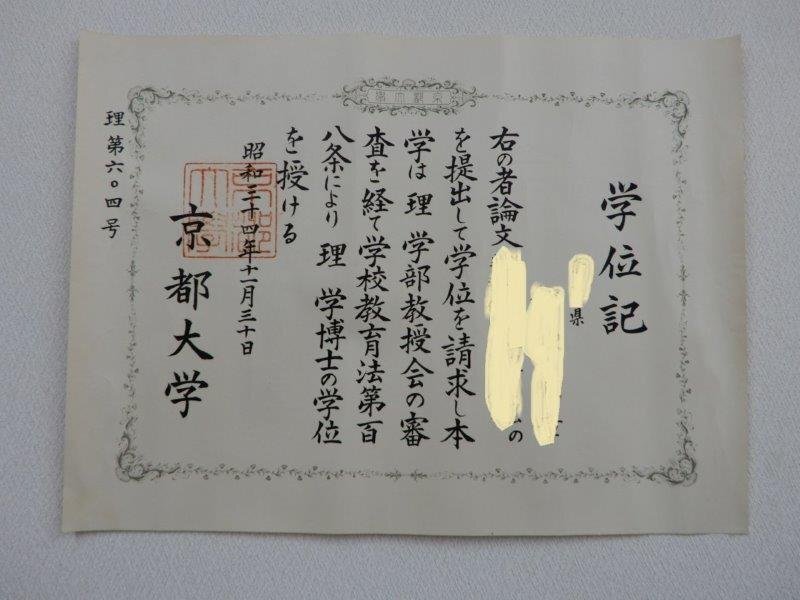 京都大學
学位記
県
右の者論文の
を提出して学位を請求し本
学は 理 学部教授会の審
査を経て学校教育法第百
八条により 理 学博士の学位
を授ける
昭和三十四年十一月三十日
京都大学
理第六〇四号